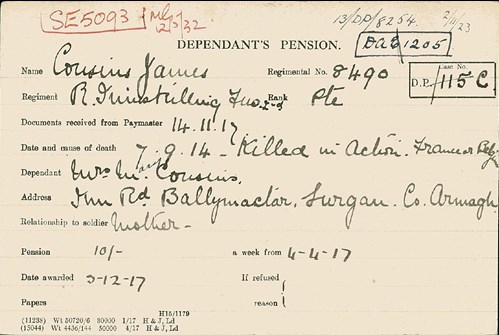 SE5093
12/5/32
13/DP/8254.
2/11/23
DEPENDANT'S PENSION.
DAB 1205
Name Cousins James Regimental No. 8490
Case No.
D.P. 115C
Regiment R. Inniskilling Fus. 2nd Rank Pte
Documents received from Paymaster 14.11.17
Date and cause of death 7.9.14 - Killed in Action. France or Belg
Dependant Mrs Mary Cousins.
Address Rd Ballymactor, Lurgan. Co. Armagh
Relationship to soldier Mother -
Pension 10/- a week from 4-4-17
Date awarded 3-12-17 If refused
Papers reason
H15/1179
(11238) Wt 50720/6 80000 1/17 H & J, Ld
(15044) Wt 4436/144 50000 4/17 H & J, Ld